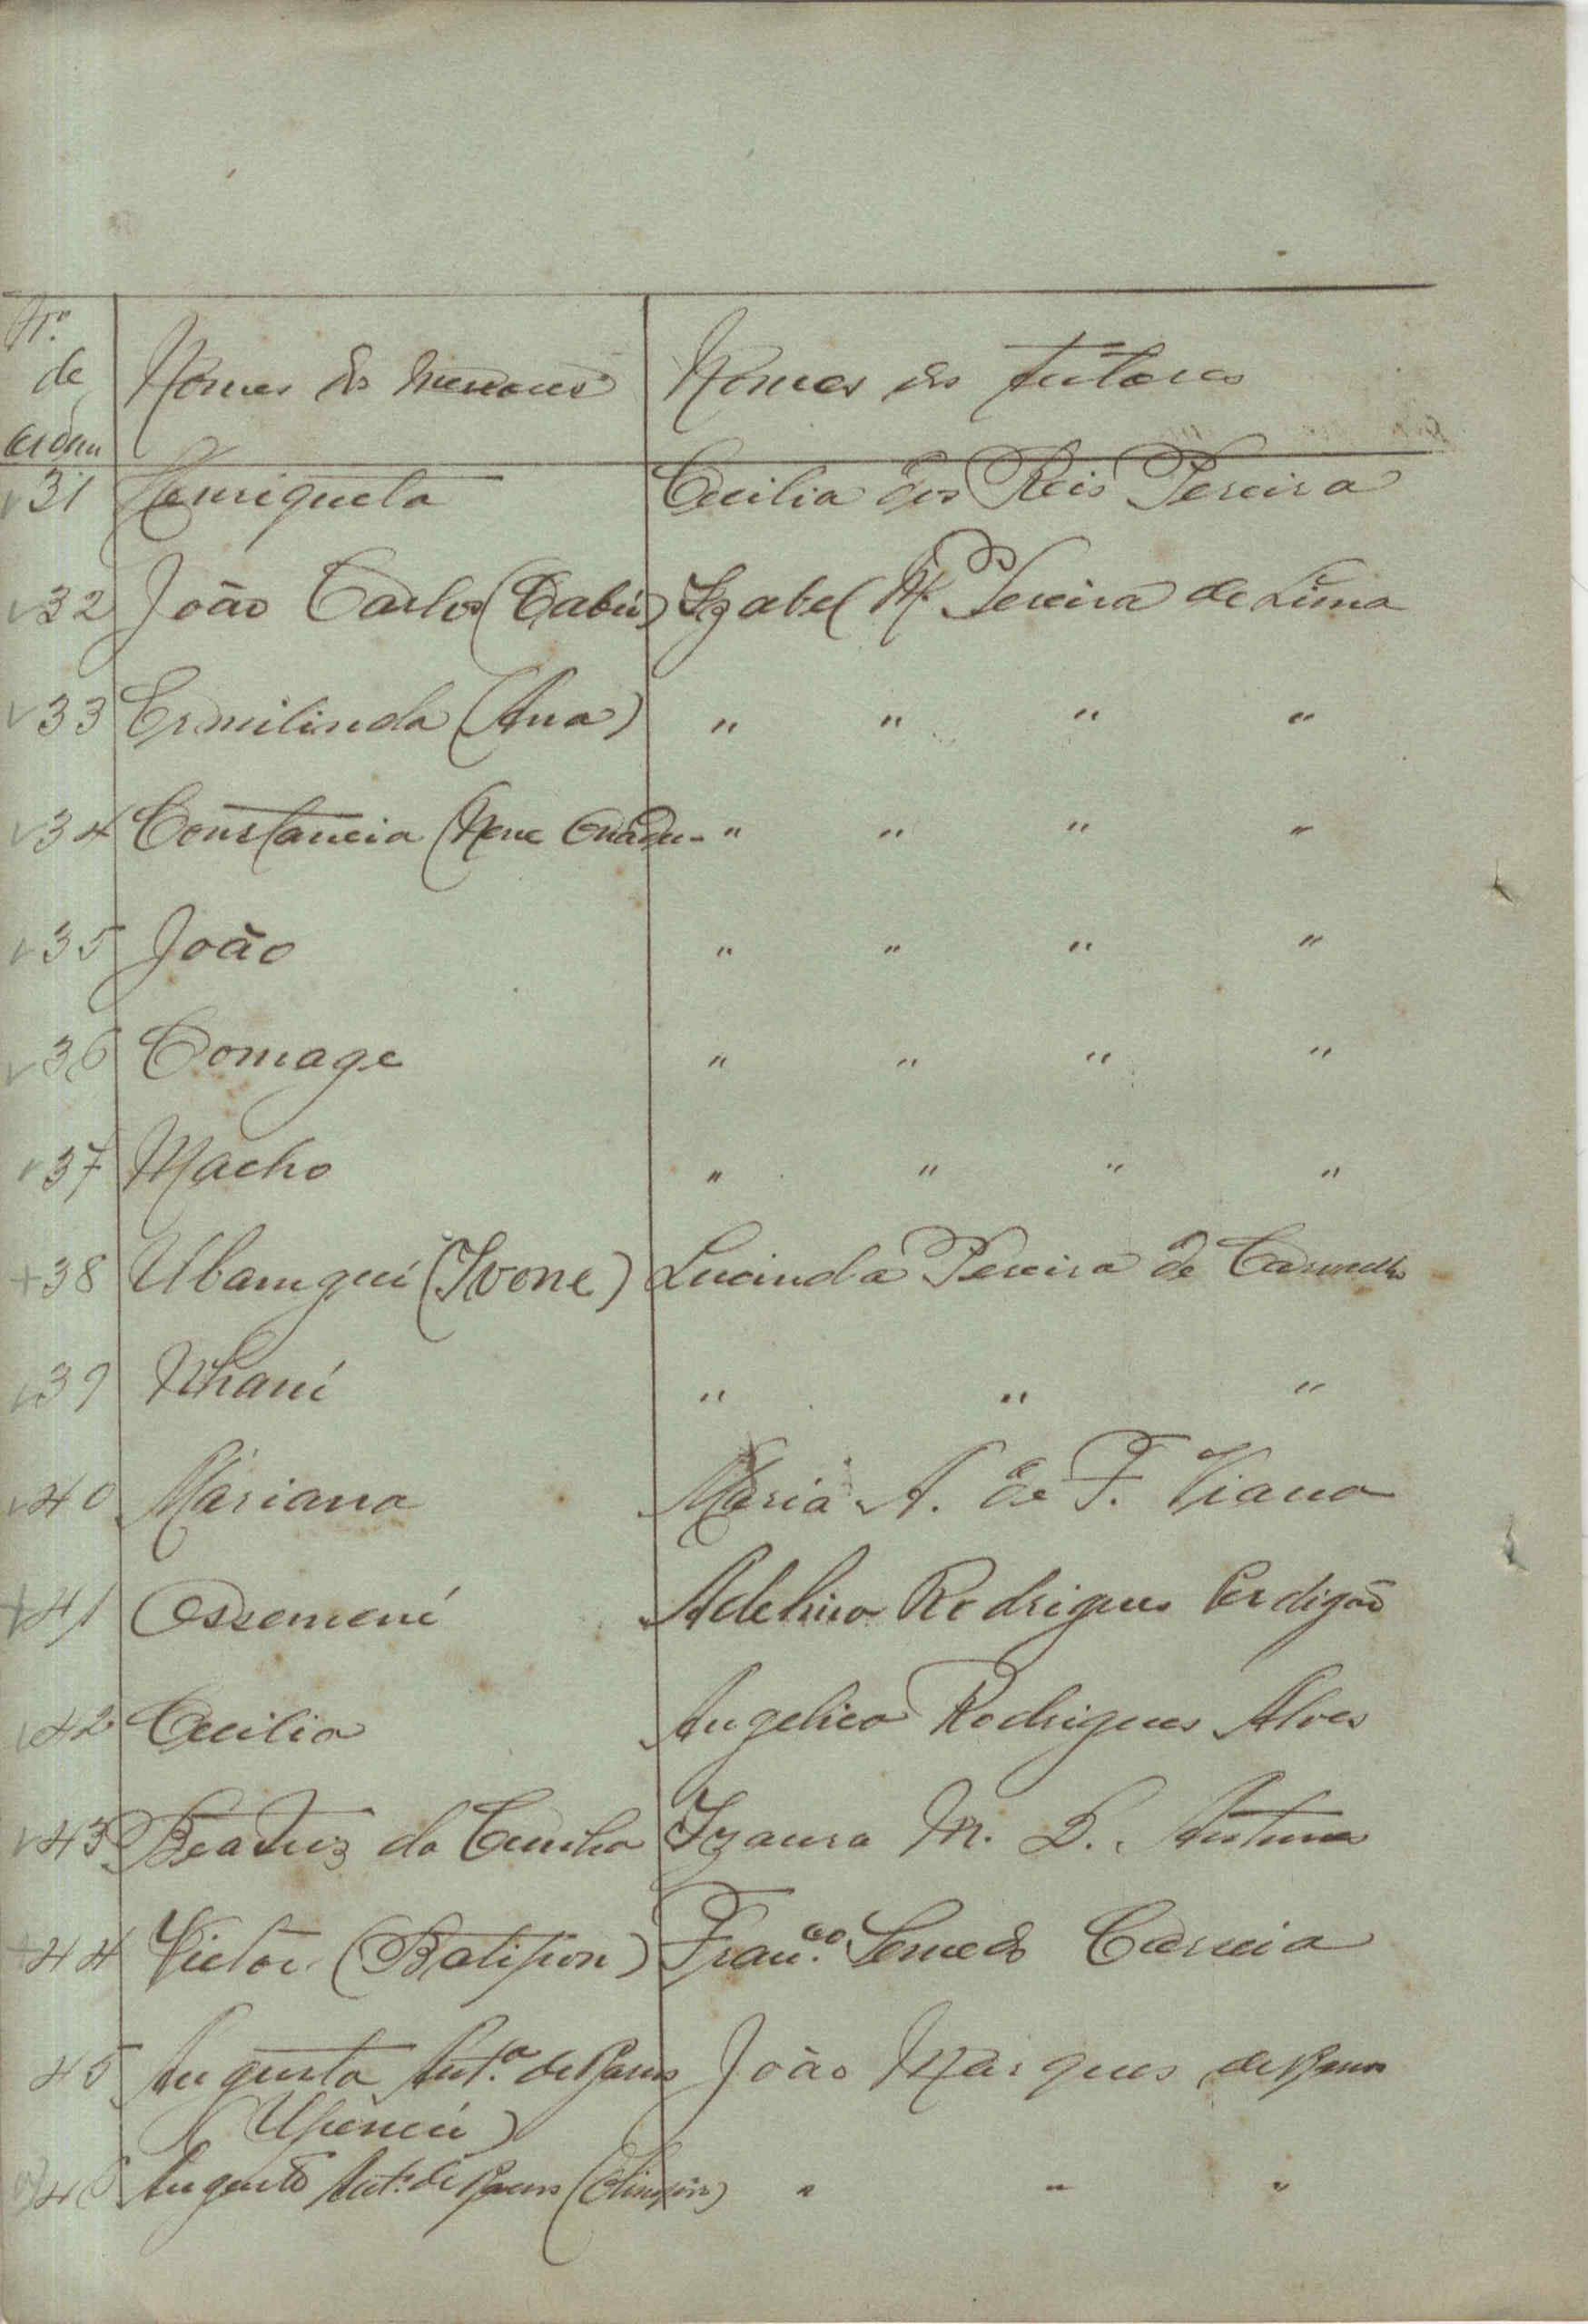 Nº
de
ordem
Nomes dos menores Nomes dos tutores
31 Henriqueta Cecilia dos Reis Pereira
32 João Carlos (Cabú) Izabel M. Pereira de Lima
33 Ermilinda (Ana) " " " "
34 Constancia (Nene " " " "
35 João " " " "
36 Comage " " " "
37 Macho " " " "
38 Ubamguí (Ivone) Lucinda Pereira de Carvalho
39 Nhaní " " "
40 Mariana Maria A. de F. Viana
41 Ossemení Adelino Rodrigues Perdigão
42 Cecilia Angelica Rodrigues Alves
43 Beatriz da Cunha Izaura M. L. Antunes
44 Victor (Batipon) Franco. Semedo Correia
45 Augusta Anta. de Barros João Marques de Barros
46 Augusto Anto. de Barros " " "